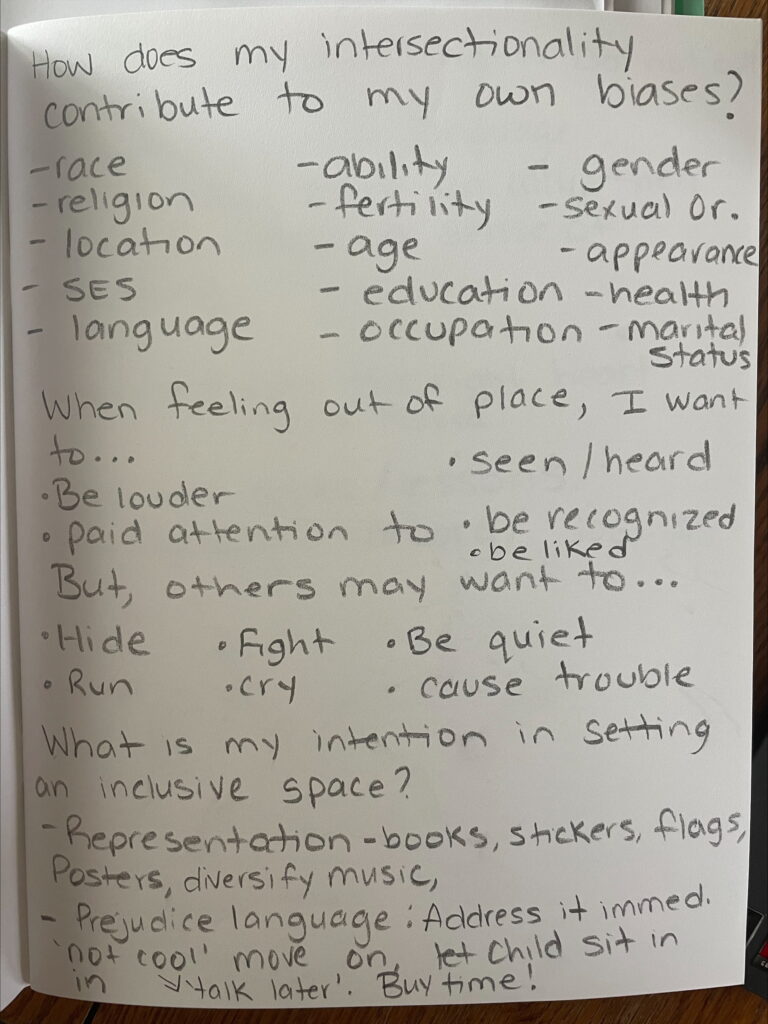 How does my intersectionality
contribute to my own biases?
- race - ability - gender
- religion - fertility - sexual Or.
- location - age - appearance
- SES - education - health
- language - occupation - marital
status
When feeling out of place, I want
to... • seen/heard
• Be louder
• paid attention to • be recognized
• be liked
But, others may want to...
• Hide • Fight • Be quiet
• Run • cry • cause trouble
What is my intention in setting
an inclusive space?
- Representation - books, stickers, flags,
Posters, diversify music,
- Prejudice language: Address it immed.
'not cool' move on, let child sit in
in 'talk later'. Buy time!